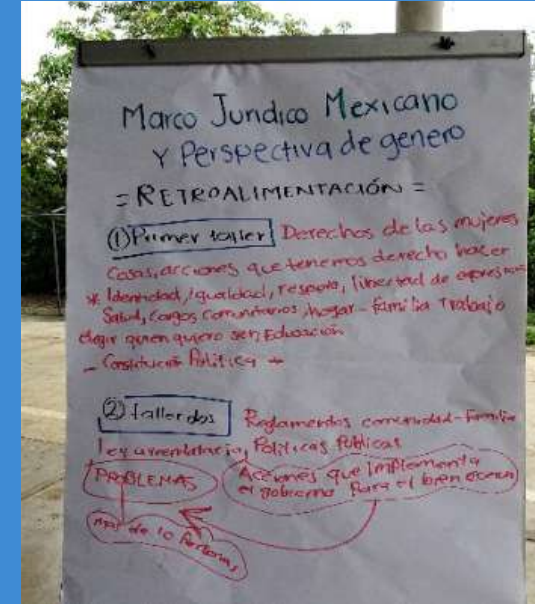 Marco Jundico Mexicano
Y Perspectiva de genero
= RETROALIMENTACIÓN =
① Primer taller Derechos de las mujeres
Cosas, acciones que tenemos derecho hacer
* Identidad, igualdad, respeto, libertad de expresion
Salud, Cargos comunitarios, hogar - familia Trabajo
elegir quien quiero ser, Educación
- Constitución Politica -
② Taller dos Reglamentos comunidad - Familia
Politicas Publicas
PROBLEMAS
Acciones que implementa
el gobierno Para el bien
mas de 10 Personas